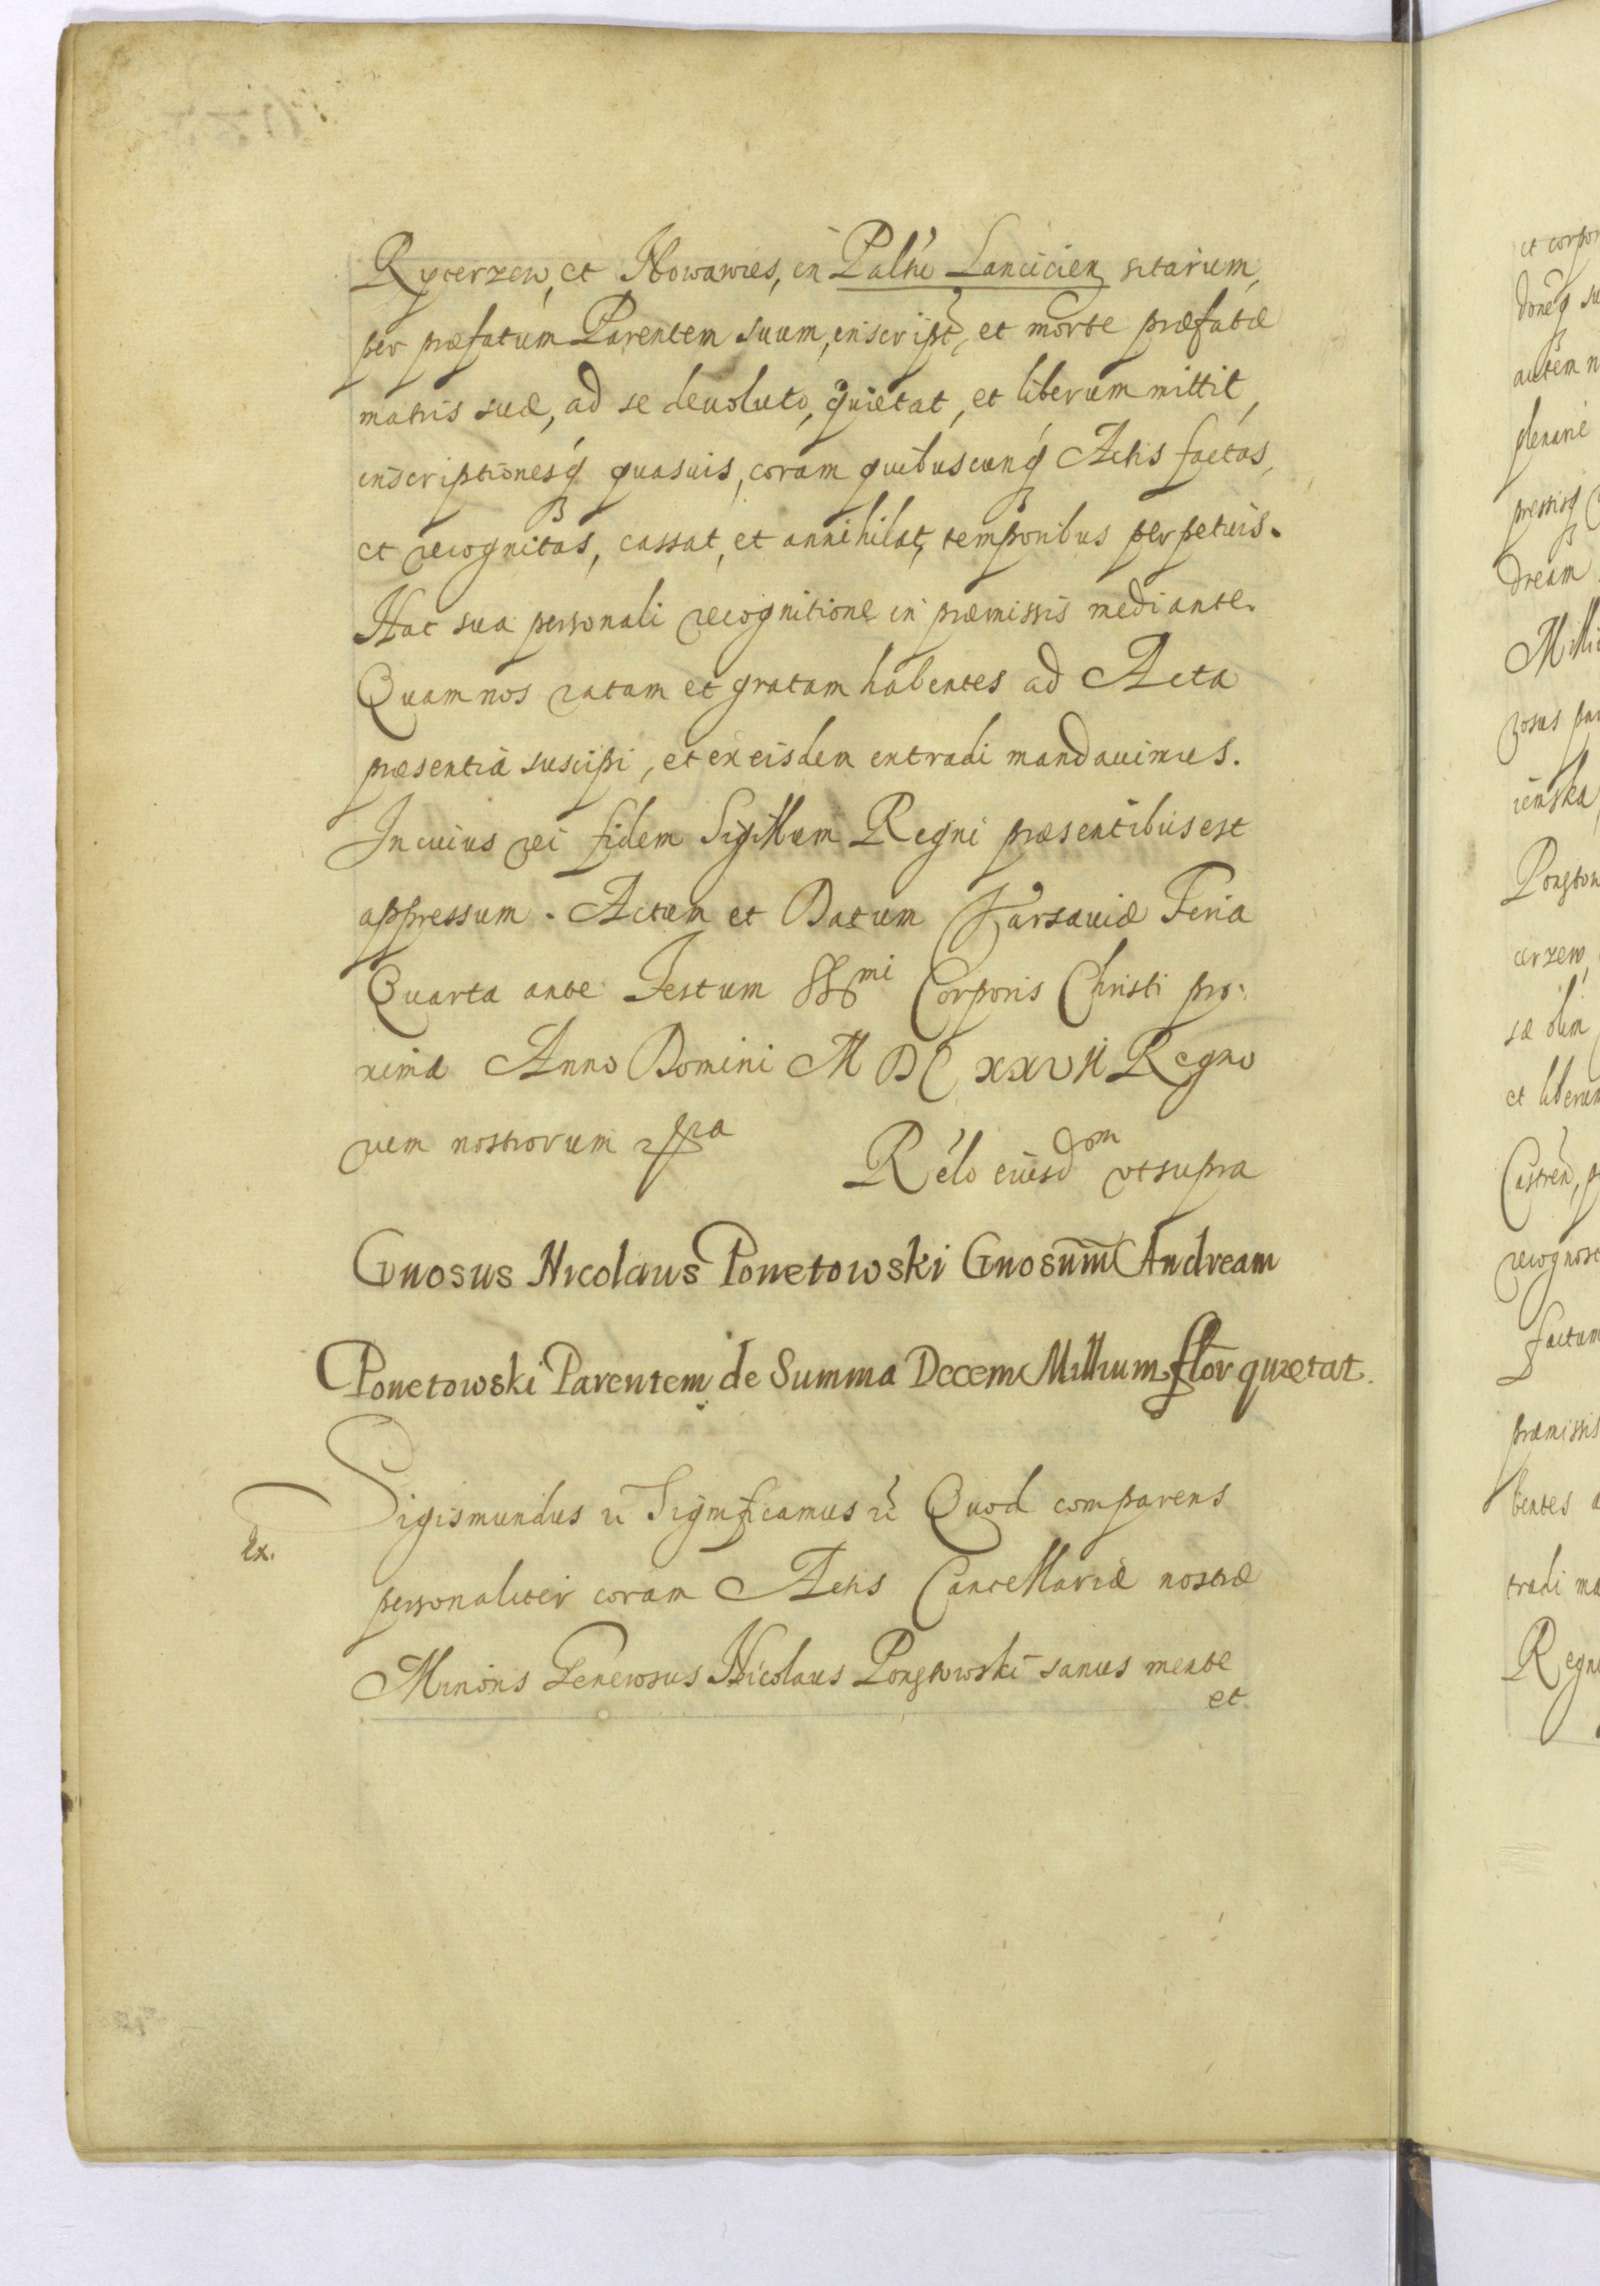 Rycerzew, et Nowawies, in Palnū Lancicien sitarum,
per præfatum Parentem suum, inscript, et morte præfatæ
matris suæ, ad se deuoluto, quietat, et liberum mittit,
inscriptionesq quasuis, coram quibuscunq Actis factas,
et recognitas, cassat, et annihilat, temporibus perpetuis.
Hac sua personali recognitione in præmissis mediante.
Quam nos ratam et gratam habentes ad Acta
præsentia suscipi, et ex eisdem extradi mandauimus.
In cuius rei fidem Sigillum Regni præsentibus est
appressum. Actum et Datum Varsauiæ Feria
Quarta ante Festum SSmi Corporis Christi pro:
xima Anno Domini MDCXXVII Regno
rum nostrorum
Rélo eiusdom vt supra
Gnosus Nicolaus Ponetowski Gnosum Andream
Ponetowski Parentem de Summa Decem Millium flor quietat.
Sigismundus rc Significamus rc Quod comparens
Ex.
personaliter coram Actis Cancellariæ nostræ
Minoris Generosus Nicolaus Ponętowski sanus mente
et
et corpo
doneq su
autem n
plenarie
pressisq
dream
Milli
rosus par
ienska
Ponętow
cerzew,
sæ olim
et liberum
Castren, p
recognosc
factam
præmissis
bentes a
tradi ma
Regni